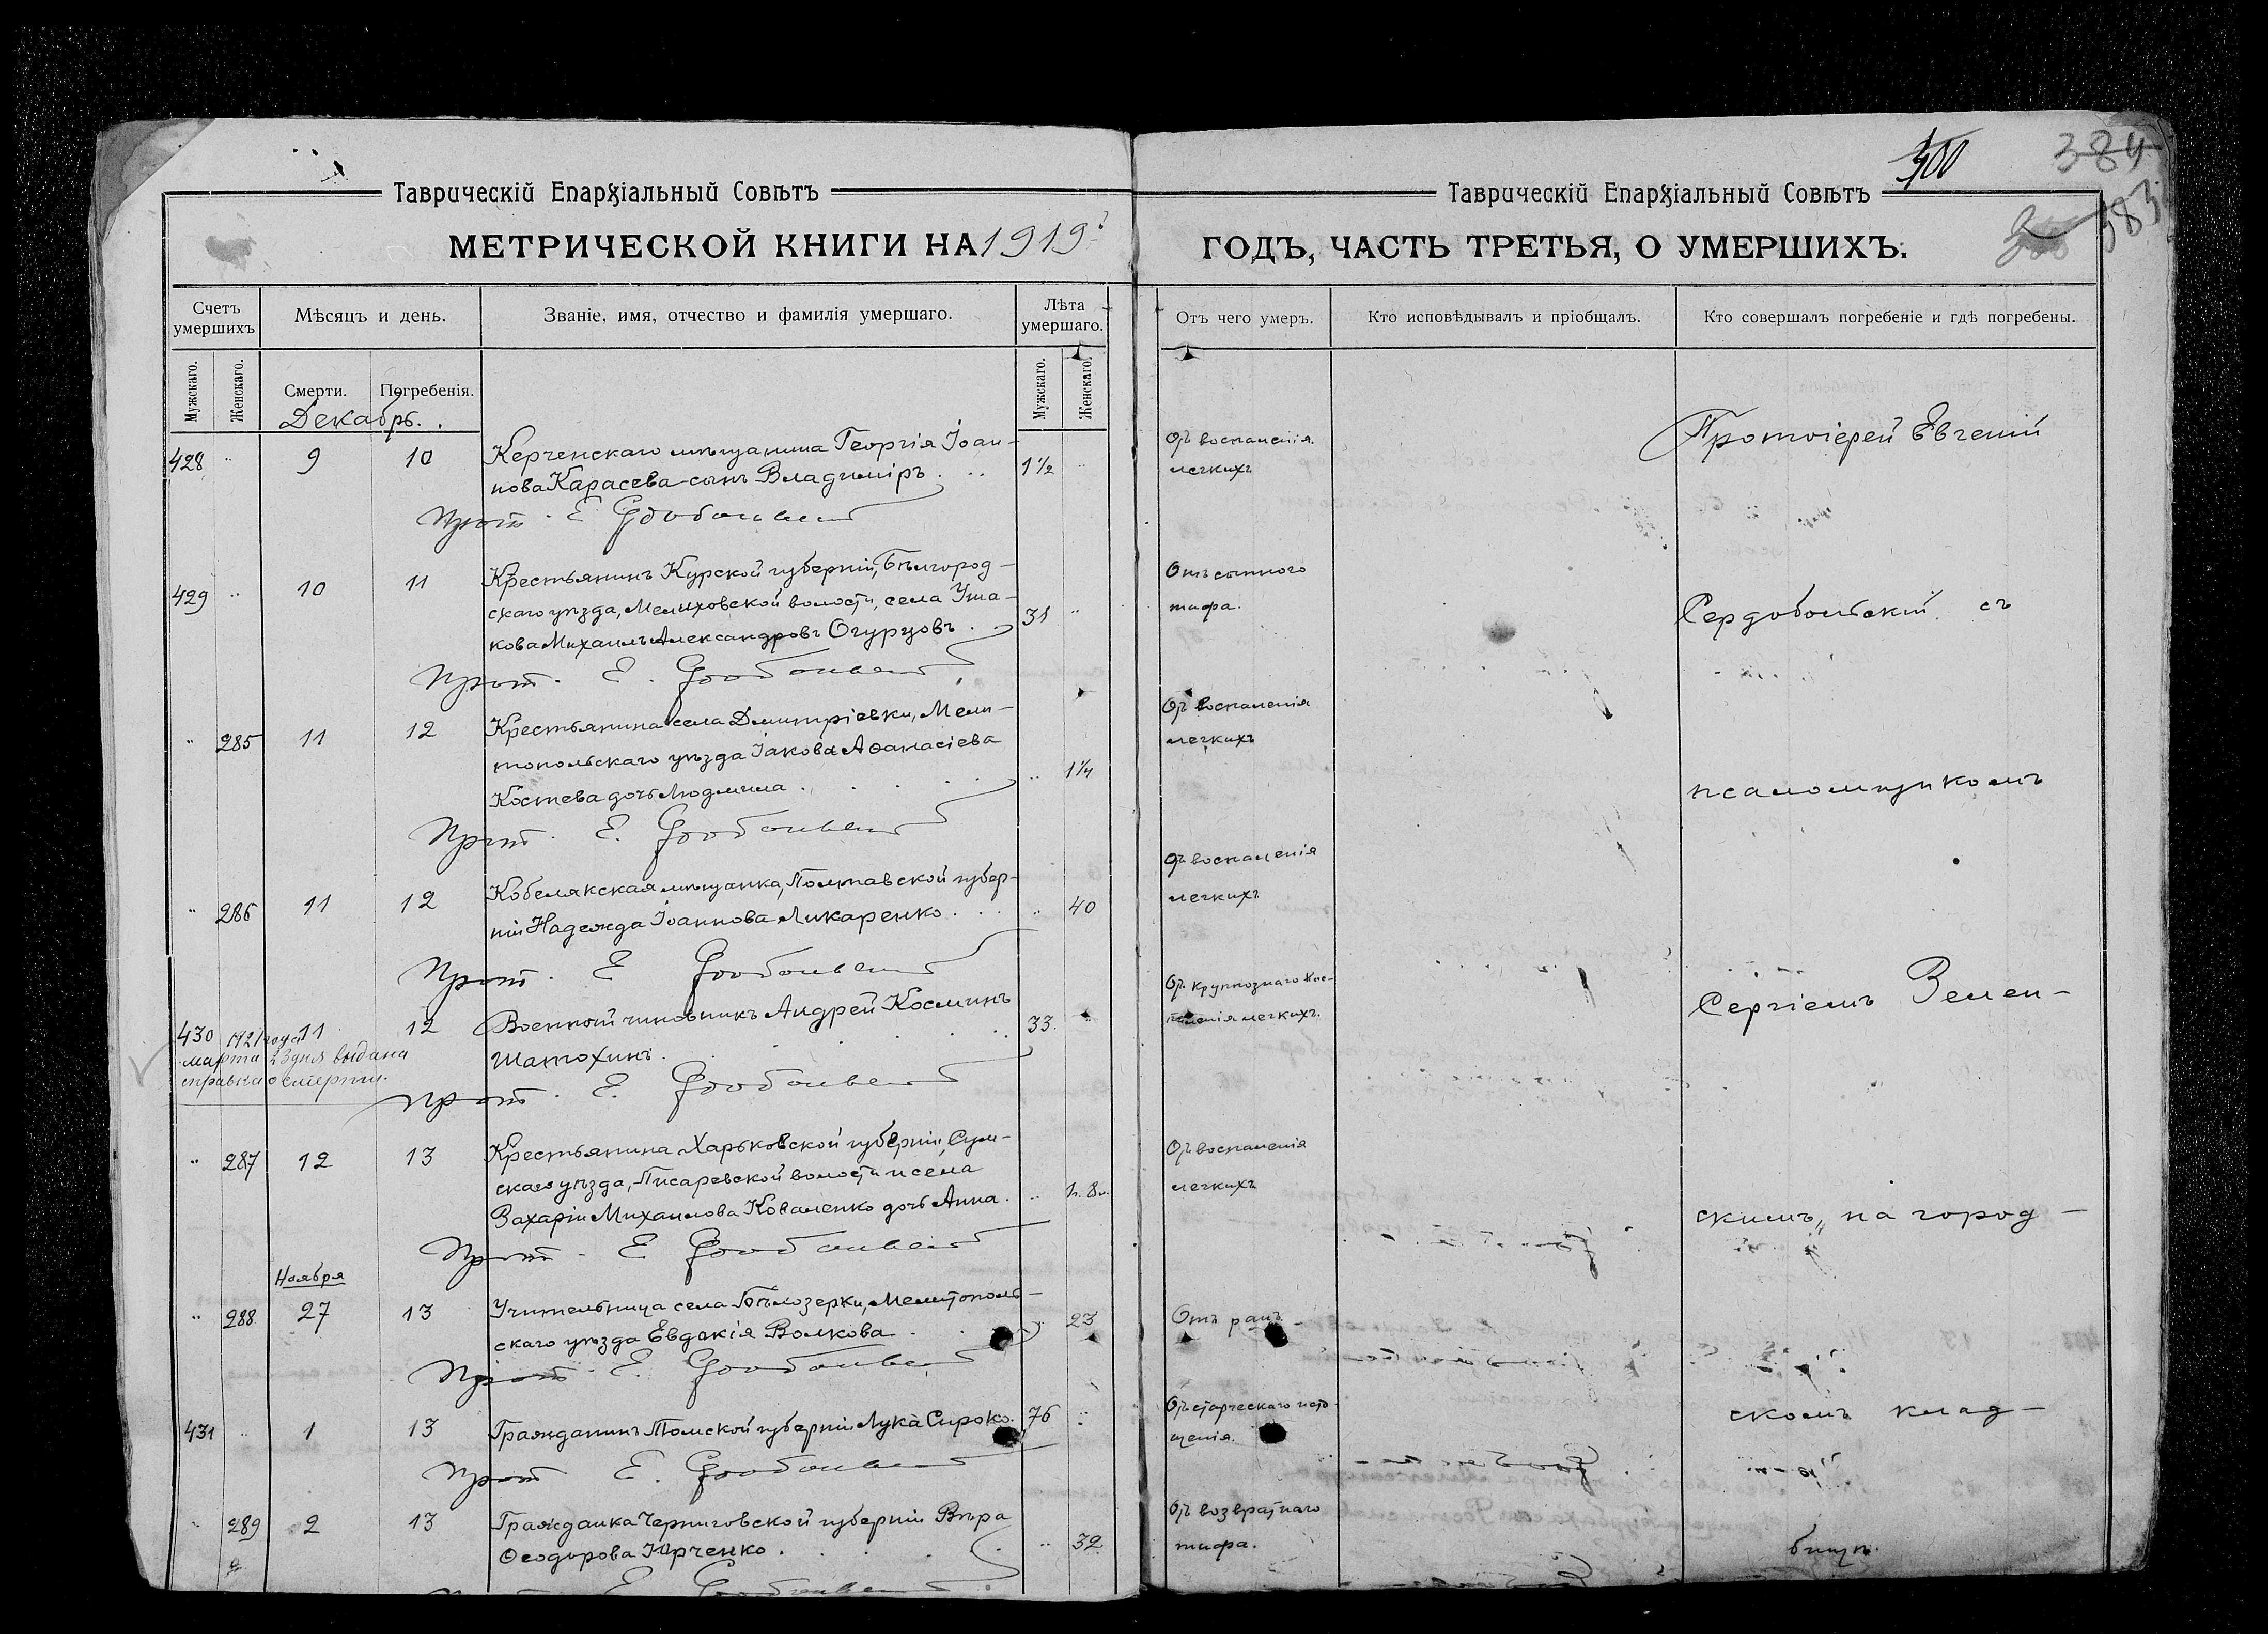 400
384
383
Таврическій Епархіальный Совѣтъ
Таврическій Епархіальный Совѣтъ
МЕТРИЧЕСКОЙ КНИГИ НА 1919
ГОДЪ, ЧАСТЬ ТРЕТЬЯ, О УМЕРШИХЪ.
Счетъ умершихъ
Мѣсяцъ и день.
Званіе, имя, отчество и фамилія умершаго.
Лѣта умершаго.
Отъ чего умеръ.
Кто исповѣдывалъ и пріобщалъ.
Кто совершалъ погребеніе и гдѣ погребены.
Мужскаго.
Женскаго.
Смерти.
Погребенія.
Мужскаго.
Женскаго.
Декабрь.
428 " 9 10 Керченскаго мѣщанина Георгія Іоан-
нова Карасева сынъ Владиміръ . . . 1½ "
Отъ воспаленія
легкихъ
Протоіерей Евгеній
Прот. Е. Сердобольскій
429 " 10 11 Крестьянинъ Курской губерніи, Бѣлгород-
скаго уѣзда, Мелиховской волости, села Уша-
кова Михаилъ Александровъ Огурцовъ . 31 "
Отъ сыпного
тифа.
Сердобольскій съ
Прот. Е. Сердобольскій
" 285 11 12 Крестьянина села Димитріевки, Мели-
топольскаго уѣзда Іакова Аѳанасіева
Костева дочь Людмила . . . . " 1¼
Отъ воспаленія
легкихъ
псаломщикомъ
Прот. Е. Сердобольскій
" 286 11 12 Кобелякская мѣщанка, Полтавской губер-
ніи Надежда Іоаннова Ликаренко . . . " 40
Отъ воспаленія
легкихъ
Прот. Е. Сердобольскій
430 11 12 Военный чиновникъ Андрей Косминъ
Шатохинъ . . . . . 33. "
1921 года
марта 23 дня выдана
справка о смерти.
Отъ крупознаго вос-
паленія легкихъ.
Сергіемъ Зелен-
Прот. Е. Сердобольскій
" 287 12 13 Крестьянина Харьковской губерніи, Сум-
скаго уѣзда, Писаревской волости и села
Захаріи Михаилова Коваленко дочь Анна . "
Отъ воспаленія
легкихъ
скимъ, на город-
Прот. Е. Сердобольскій
Ноября
" 288 27 13 Учительница села Бѣлозерки, Мелитополь-
скаго уѣзда Евдокія Волкова . . " 23
Отъ ранъ
Прот. Е. Сердобольскій
431 " 1 13 Гражданинъ Томской губерніи Лука Сироко. 76 "
Отъ старческаго исто-
щенія.
скомъ клад-
Прот. Е. Сердобольскій
" 289 2 13 Гражданка Черниговской губерніи Вѣра
Ѳеодорова Юрченко . . . . " 32.
Отъ возвратнаго
тифа.
бищѣ.